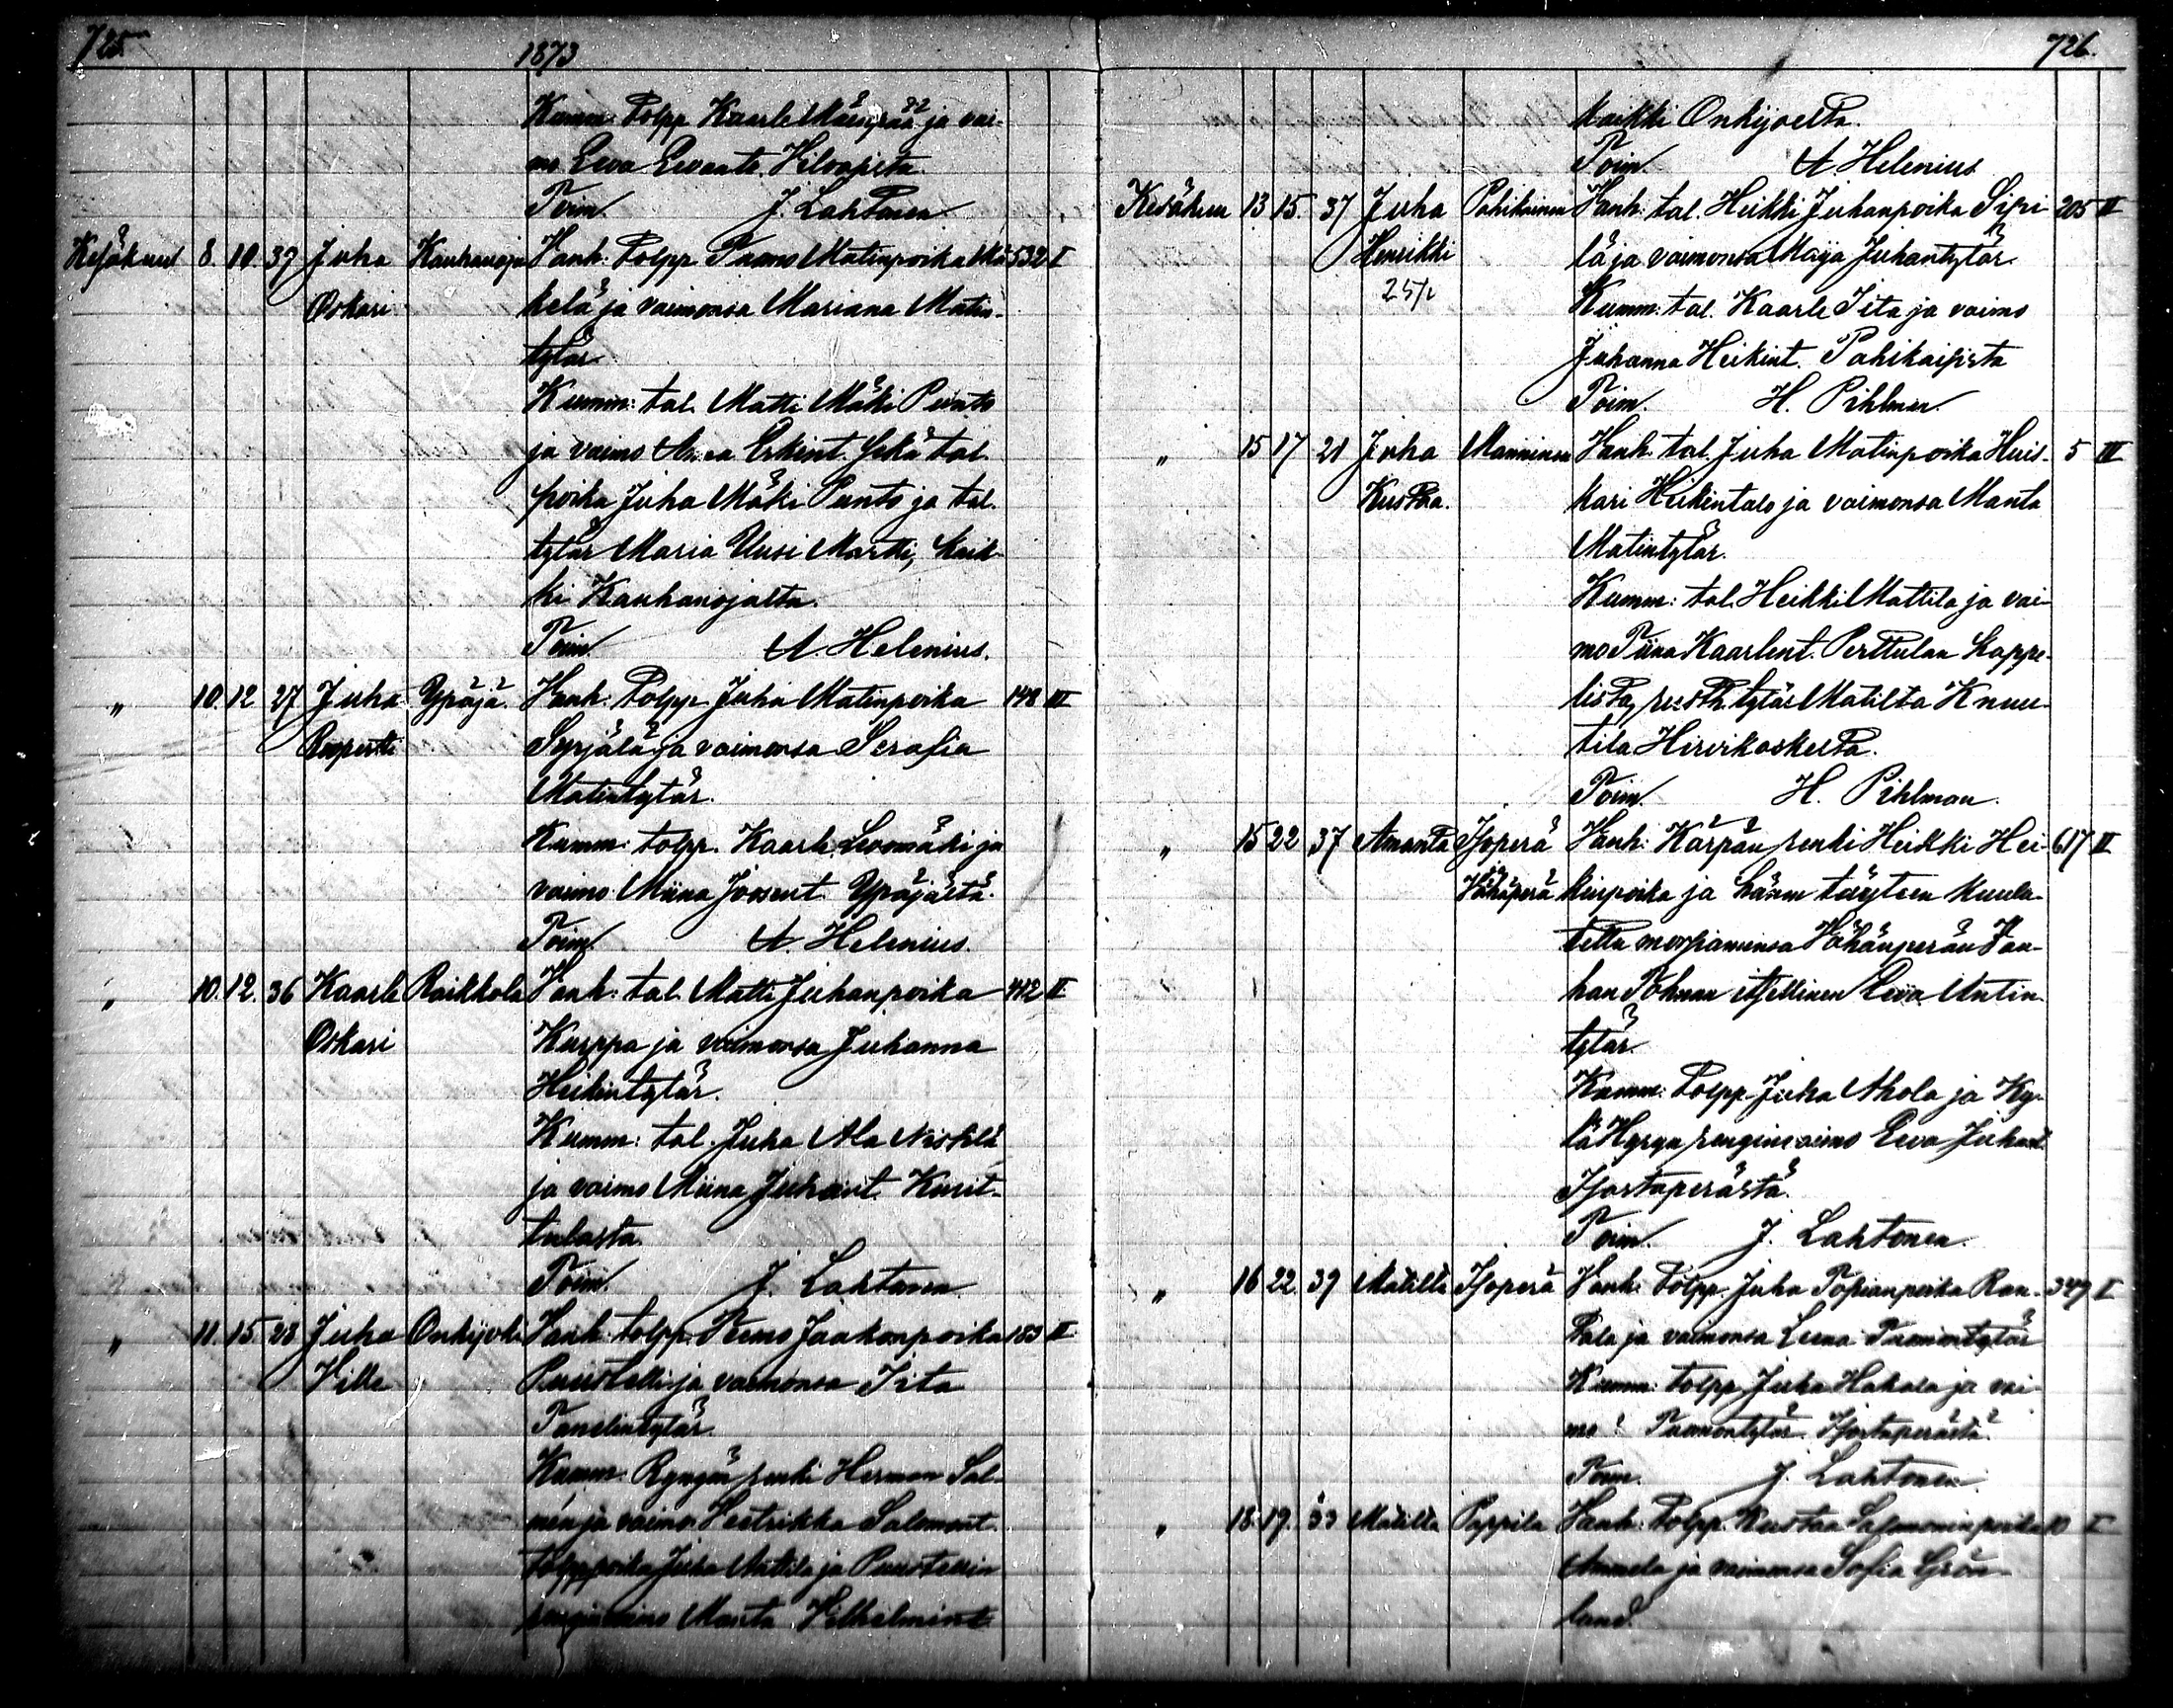 725.
1873
Kumm: Tolpp. Kaarle Mäenpää ja vai-
mo Eeva Eevant. Vilvaista.
Toim. J. Lahtonen
Kesäkuu 8. 10. 37 Juha Kauhanoja Vanh: Tolpp. Tuomo Matinpoika Mä- 532 I
Oskari kelä ja vaimonsa Mariana Matin-
tytär.
Kumm: tal. Matti Mäki Punto
ja vaimo Erkint. sekä tal.
poika Juha Mäki Punto ja tal.
tytär Maria Uusi Martti, kaik-
ki Kauhanojalta.
Toim. A. Helenius.
" 10. 12 27 Juha Ypäjä. Vanh: Tolpp. Juha Matinpoika 148 III
Ruperti Syrjälä ja vaimonsa Serafia
Matintytär.
Kumm: tolpp. Kaarle Levomäki ja
vaimo Miina Joosent. Ypäjältä.
Toim. A. Helenius.
" 10. 12. 36 Kaarle Raikkola Vanh: tal. Matti Juhanpoika 442 II
Oskari Kurppa ja vaimonsa Juhanna
Heikintytär.
Kumm: tal. Juha Ala Niskala
ja vaimo Miina Juhant. Kurit-
tulasta.
Toim. J. Lahtonen
" 11. 15. 23 Juha Onkijoki Vanh: tolpp. Tuomo Jaakonpoika 183 II
Ville Puustelli ja vaimonsa Iita
Tanelintytär.
Kumm: renki Herman Sal-
mén ja vaimo Hestrikka Salomont.
tolpp.poika Juha Mattila ja Puustellin
renginvaimo Manta Vilhelmint.
726.
kaikki Onkijoelta.
Toim. A. Helenius
Kesäkuu 13 15. 37 Juha Pahikainen Vanh: tal. Heikki Juhanpoika Sipi- 205 II
Henrikki lä ja vaimonsa Maija Juhantytär
25/1 Kumm: tal. Kaarle Iita ja vaimo
Juhanna Heikint. Pahikaisista
Toim. H. Pihlman.
" 15 17 21 Juha Manninen Vanh: tal. Juha Matinpoika Huis- 5 III
Kustaa. kari Heikintalo ja vaimonsa Manta
Matintytär.
Kumm: tal. Heikki Mattila ja vai-
mo Tiina Kaarlent. Perttulan kappe-
lista, tytär Matilta Knuu-
tila Hirvikoskelta.
Toim. H. Pihlman.
" 15 22 37 Amanta Isoperä Vanh: Kärpän renki Heikki Hei- 617 II
ja Vähäperä kinpoika ja hänen täyteen kuula-
tettu morsiamensa Vähänperän Van-
han Tohnan itsellinen Eeva Antin
tytär.
Kumm: Tolpp. Juha Ahola ja Ky-
lä Hyrsyn renginvaimo Eeva Juhant.
Isostaperästä.
Toim. J. Lahtonen.
" 16 22 39 Matilta Isoperä Vanh: Tolpp. Juha Topianpoika Ran- 349 I
tala ja vaimonsa Leena Tuomontytär
Kumm: tolpp. Juha Hakala ja vai-
mo ? Tuomontytär. Isostaperästä.
Toim. J. Lahtonen.
" 18. 19. 33 Matilta Pappila Vanh: Tolpp. Kustaa Salomoninpoika 10 I
Ammela ja vaimonsa Sofia Grön-
land.